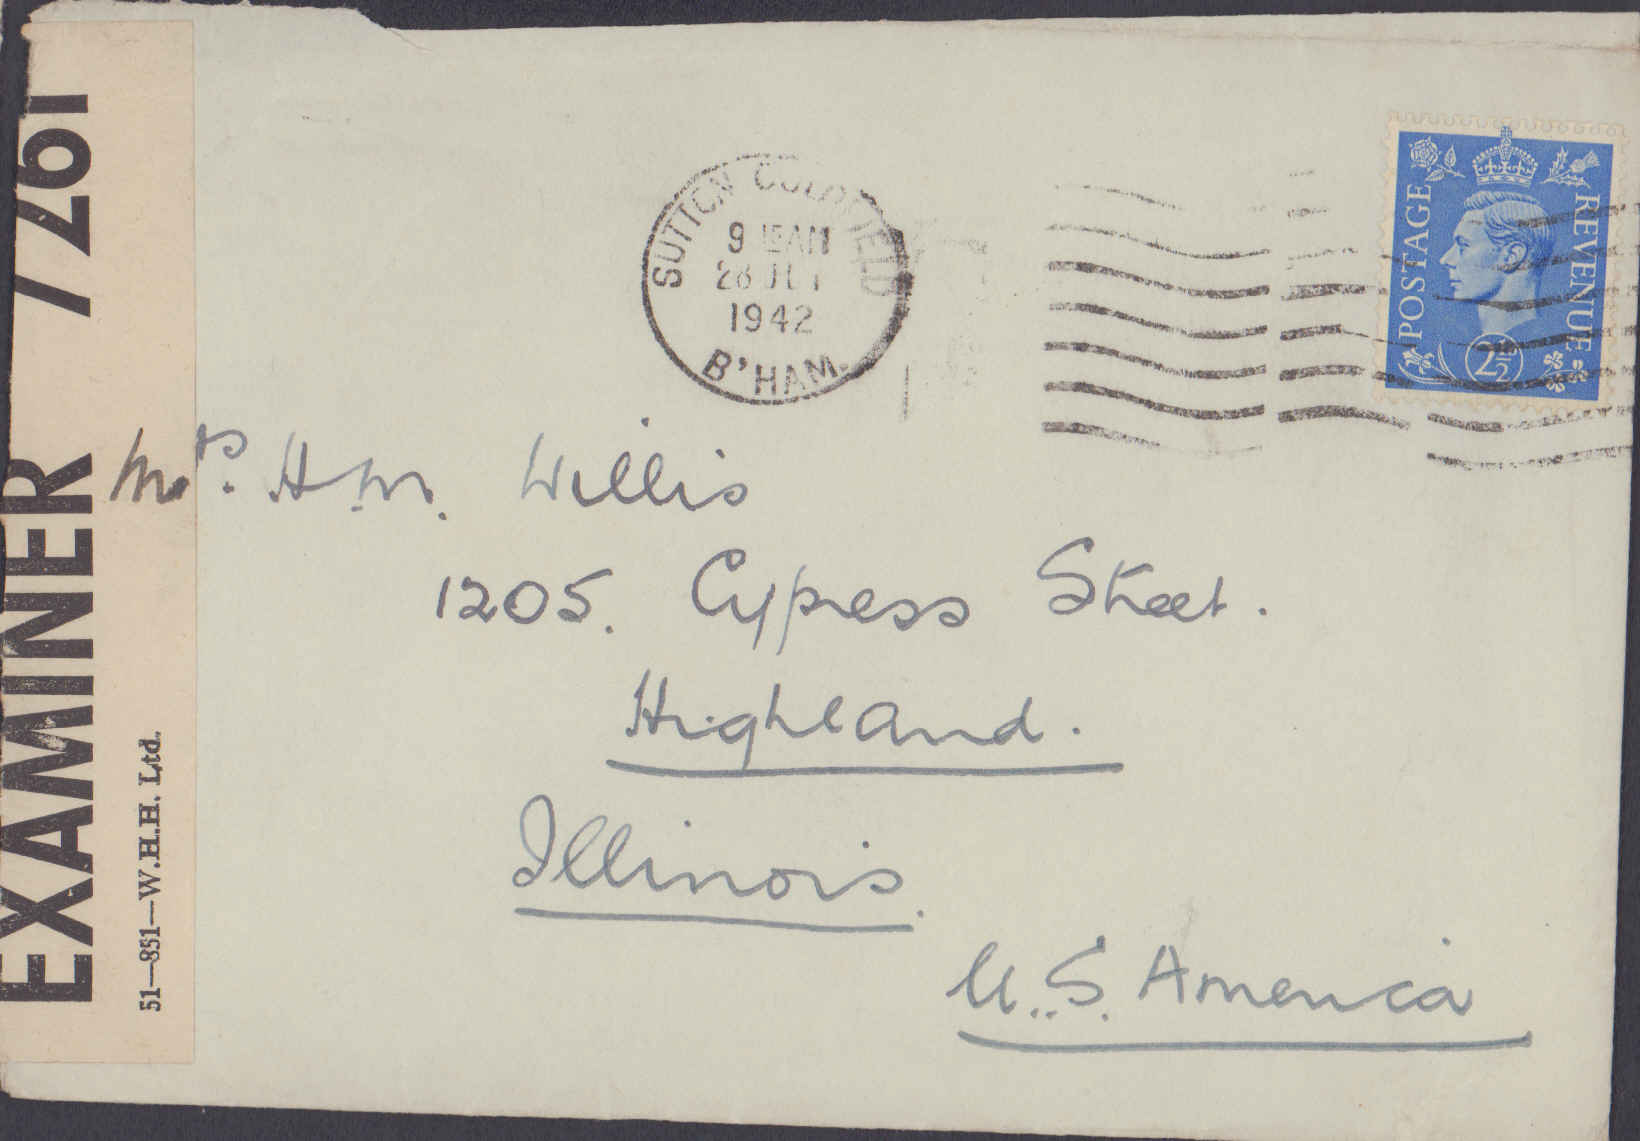 EXAMINER 7261
51—851—W.H.H. Ltd.
SUTTON COLDFIELD
9 15 AM
28
1942
B'HAM.
POSTAGE
REVENUE
2½D
Mrs. H.M. Willis
1205. Cypress Street.
Highland.
Illinois.
U.S. America